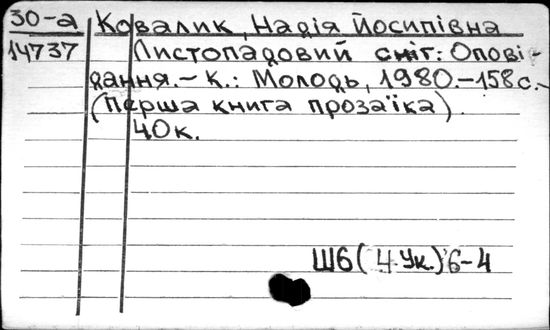 30-а Ковалик, Надія Йосипівна
14737 Листопадовий сніг: Опові-
дання.– К.: Молодь, 1980.–158с.–
(Перша книга прозаїка).
40к.
Ш6(4Ук.)6-4